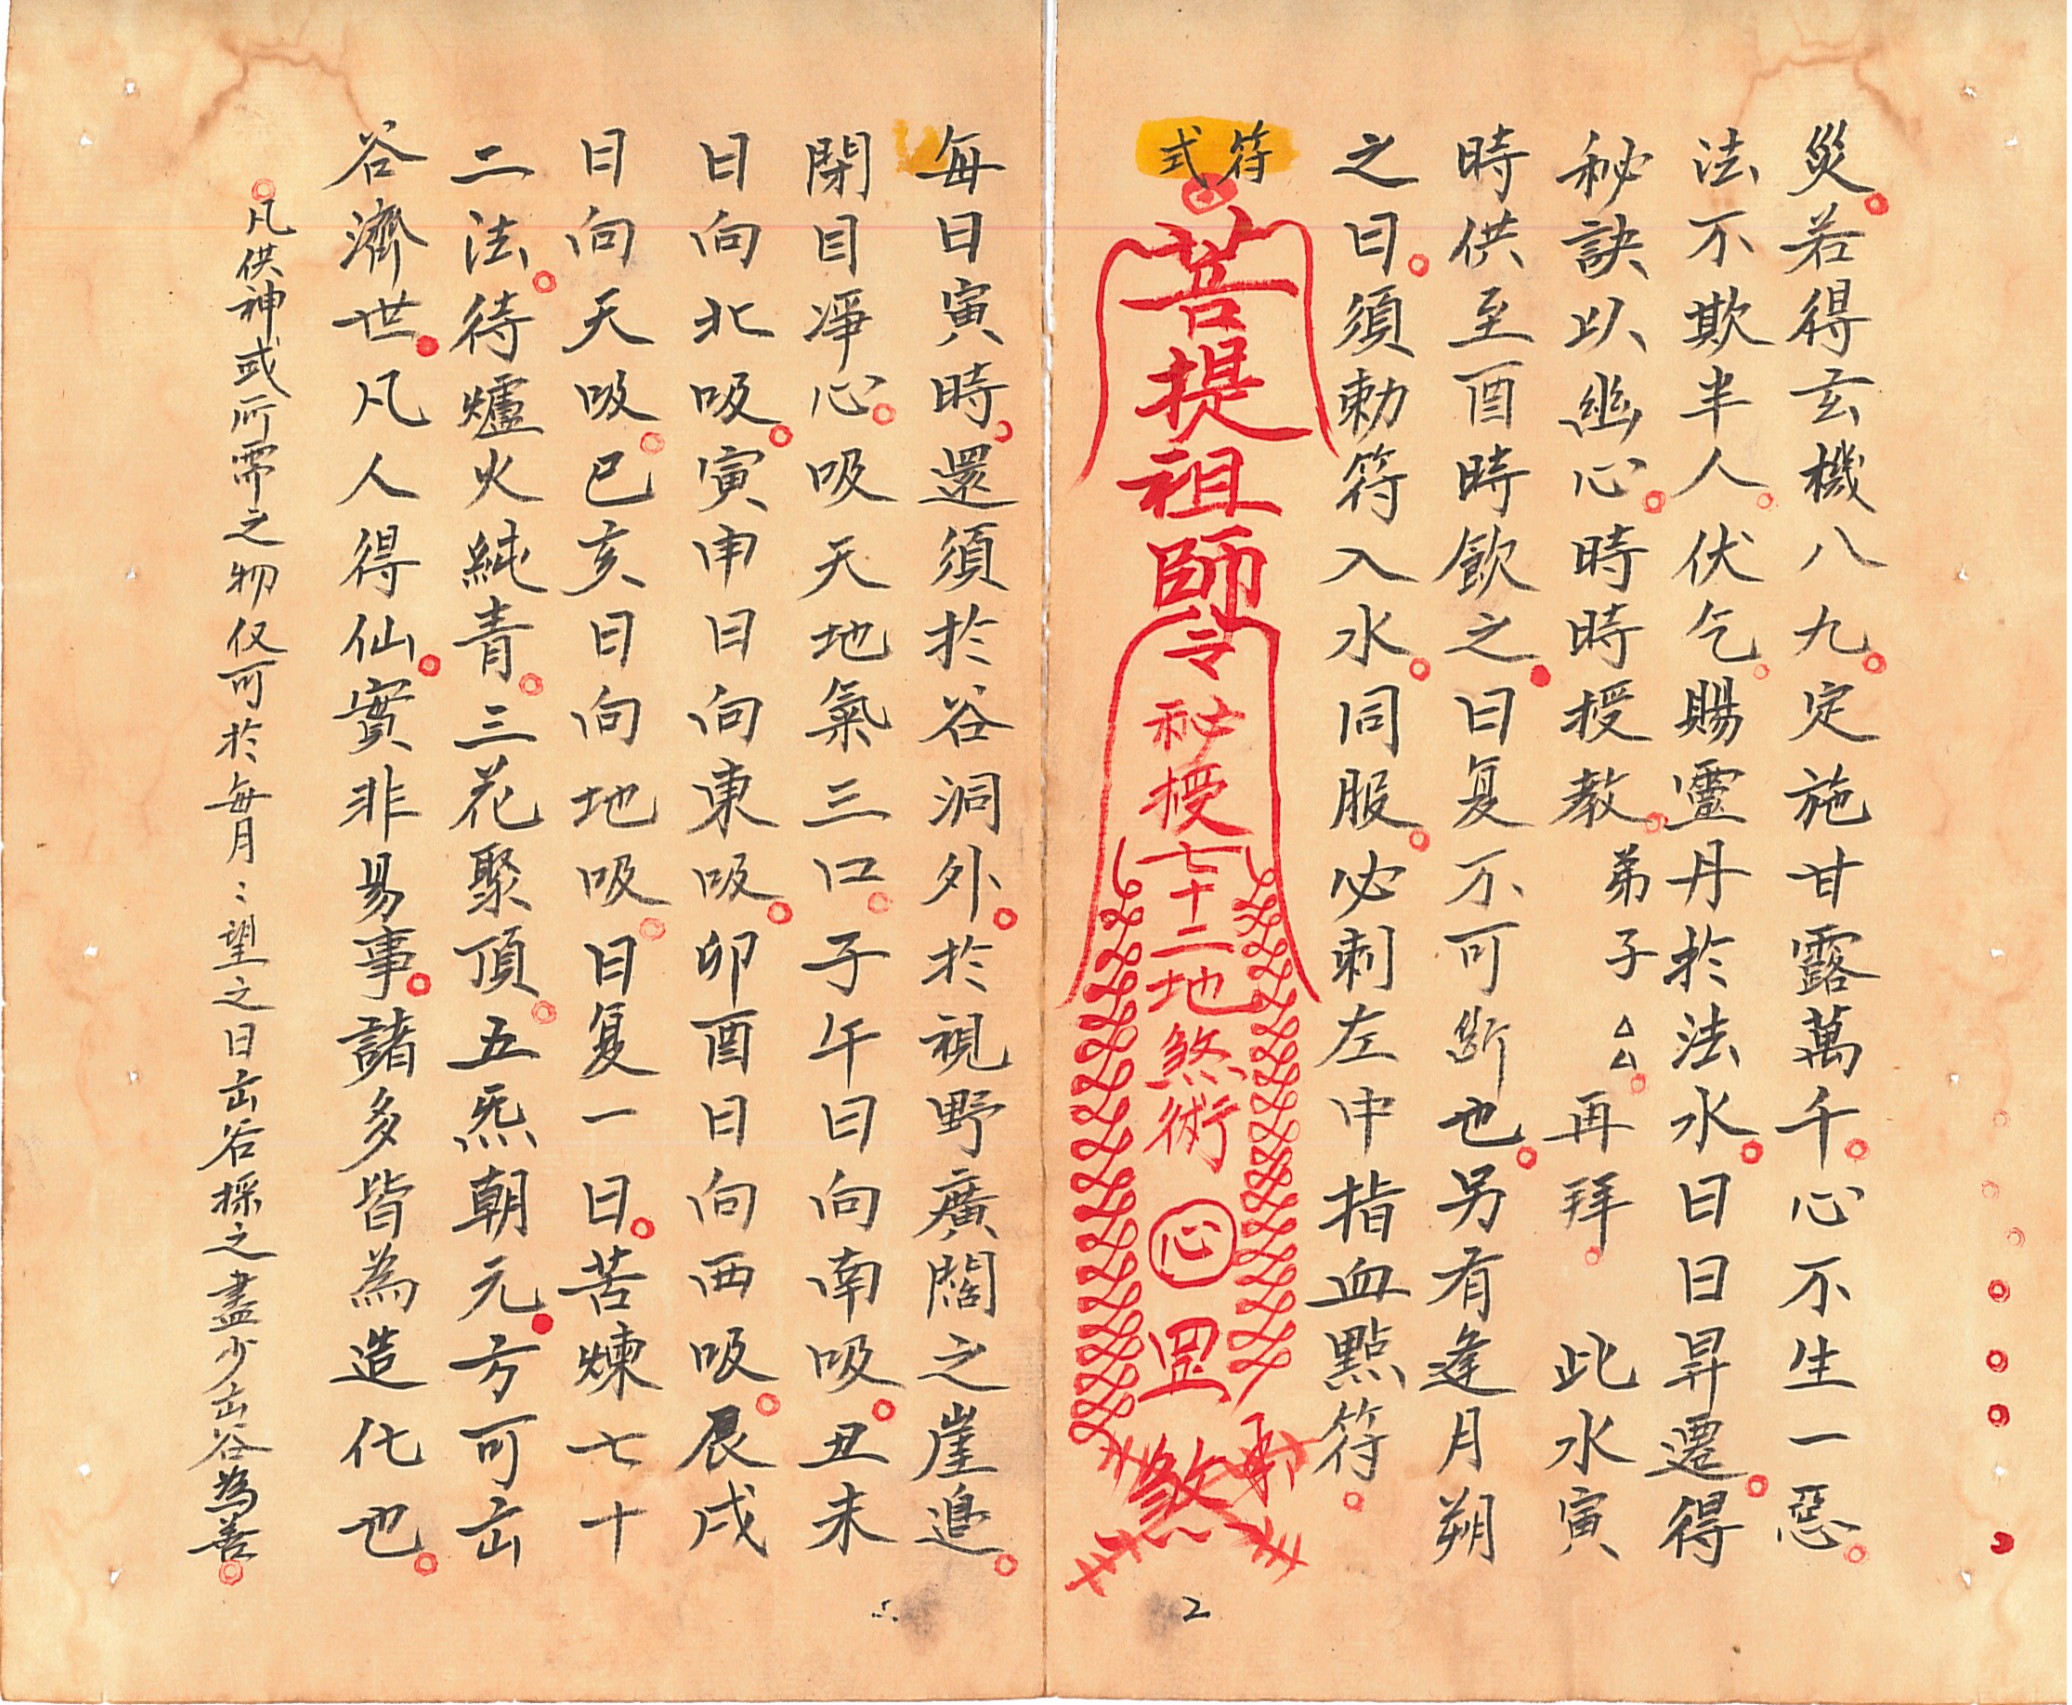 災。若得玄機八九。定施甘露萬千。心不生一惡。
法不欺半人。伏乞。賜靈丹於法水。日日昇遷。得
秘訣以幽心。時時授教。弟子△△。再拜。此水寅
時供至酉時飲之。日复不可斷也。另有逢月朔
之日。須勅符入水。同服。必刺左中指血點符。
符式
菩提祖師
令
秘授七十二地煞術
心
罡
煞
每日寅時。還須於谷洞外。於視野廣闊之崖邊。
閉目淨心。吸天地氣三口。子午日向南吸。丑未
日向北吸。寅申日向東吸。卯酉日向西吸。辰戌
日向天吸。巳亥日向地吸。日复一日。苦煉七十
二法。待爐火純青。三花聚頂。五炁朝元。方可出
谷濟世。凡人得仙。實非易事。諸多皆為造化也。
凡供神或所需之物仅可於每月：望之日出谷採之盡少出谷為善。
2